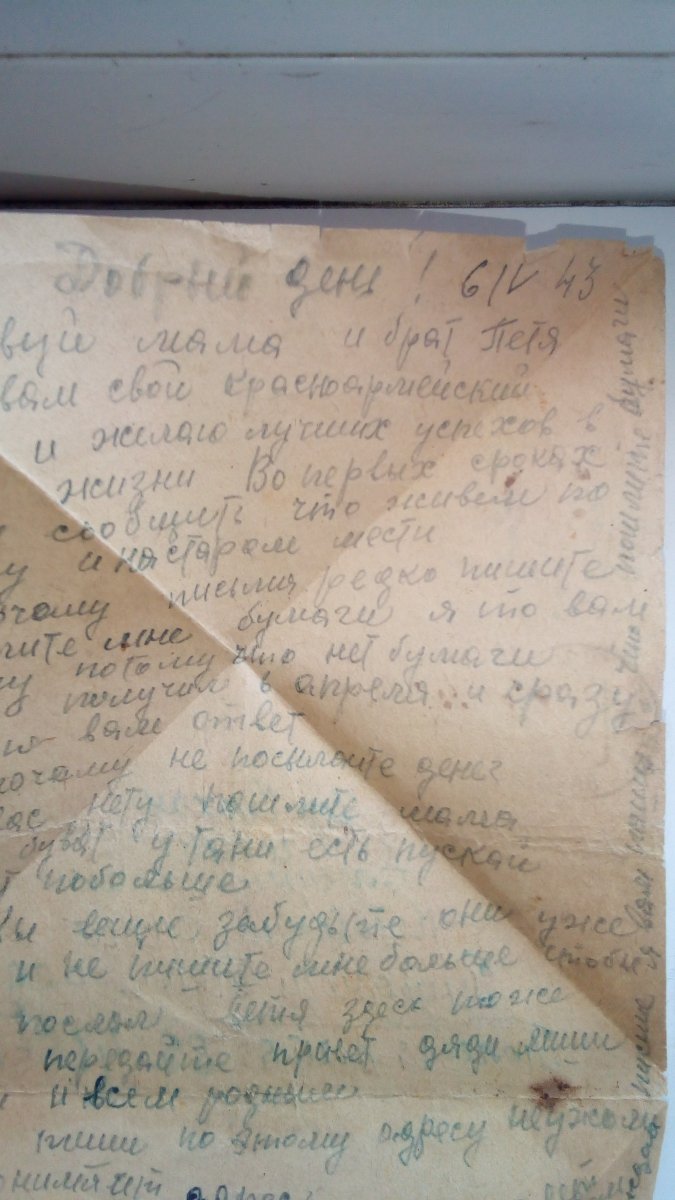 Добрый день! 6/IV 43
вуй мама и брат Петя
вам свой красноармейский
и желаю лучших успехов в
жизни Во первых сроках
сообщить что живем по
у и на старом мести
письма редко пишите
очему бумаги я то вам
ите мне
у потому что нет бумаги
получил в апреля и сразу
вам ответ
почаму не посылаите денег
вас нету пошлите мама
у тани есть пускай
побольше
вещи забудьте они уже
и не пишите мне больше чтобы
послал Петя здесь тоже
передайте привет дяди миши
и всем родным
пиши по этому адресу неужоли
адрес
вам что пошлите бумаги